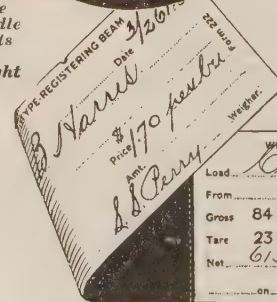 dle
ls
ht
TYPE-REGISTERING BEAM
Date 3/26/
Form 222
Harris
Price $1.70 per bu
Amt.
S S Perry
Weigher.
Load
From
Gross 84
Tare 23
Net 615
on